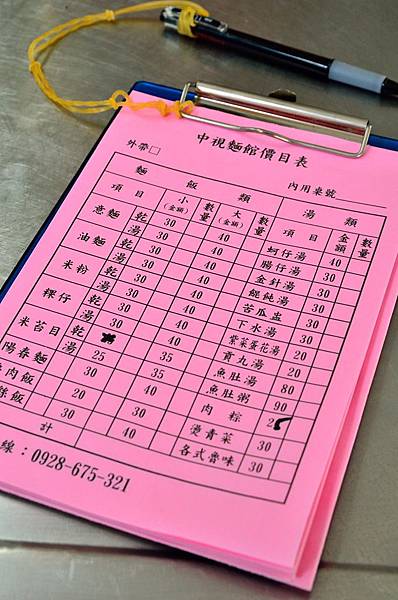 中視麵館價目表
外帶□ 內用桌號
麵 飯 類 湯 類
項 目 小(金額) 數量 大(金額) 數量 項 目 金額 數量
意麵 乾 30 40 蚵仔湯 40
湯 30 40 腸仔湯 30
油麵 乾 30 40 金針湯 30
湯 30 40 餛飩湯 30
米粉 乾 30 40 苦瓜盅 30
湯 30 40 下水湯 30
粿仔 乾 30 40 紫菜蛋花湯 20
湯 30 40 貢丸湯 20
米苔目 乾 30 40 魚肚湯 80
湯 35 魚肚粥 90
陽春麵 25 35 肉 粽
肉飯 20 30 燙青菜 30
飯 30 40 各式魯味 30
計
線：0928-675-321